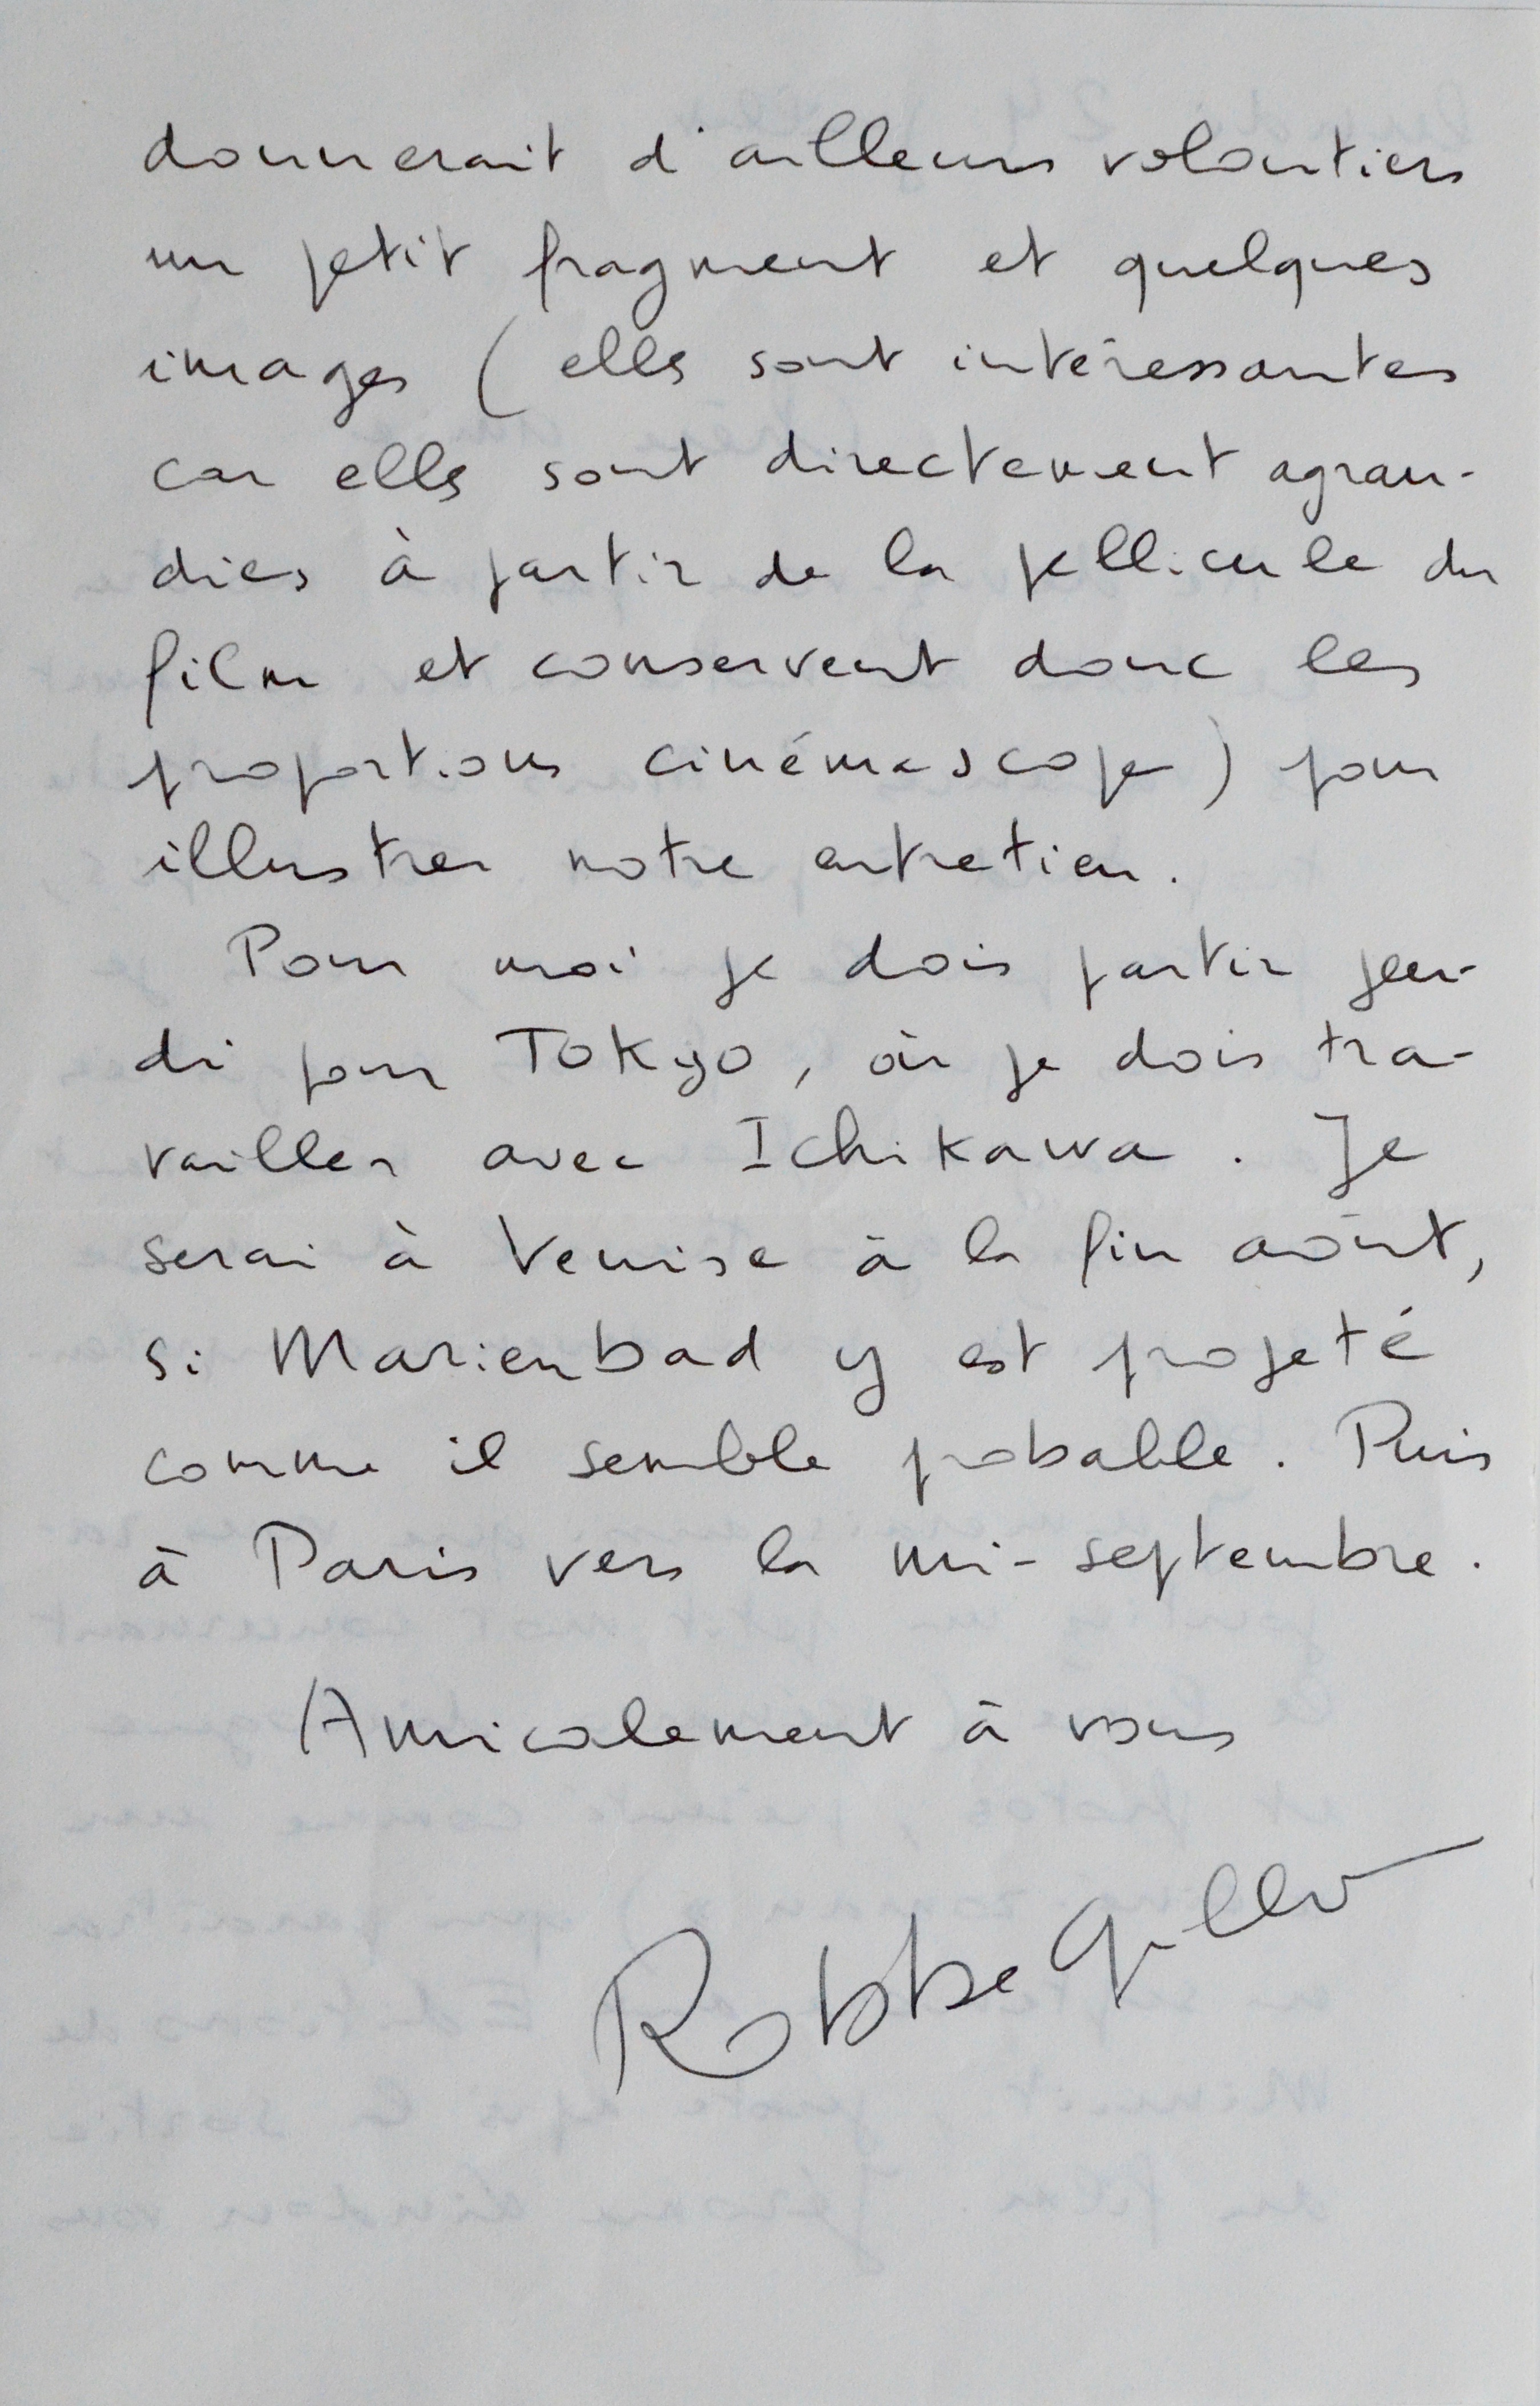 donnerait d'ailleurs volontiers
un petit fragment et quelques
images (elles sont intéressantes
car elles sont directement agran-
dies à partir de la pellicule du
film et conservent donc les
proportions cinémascope) pour
illustrer notre entretien.
Pour moi je dois partir jeu-
di pour Tokyo, où je dois tra-
vailler avec Ichikawa. Je
serai à Venise à la fin août,
si Marienbad y est projeté
comme il semble probable. Puis
à Paris vers la mi-septembre.
Amicalement à vous
Robbe-Grillet